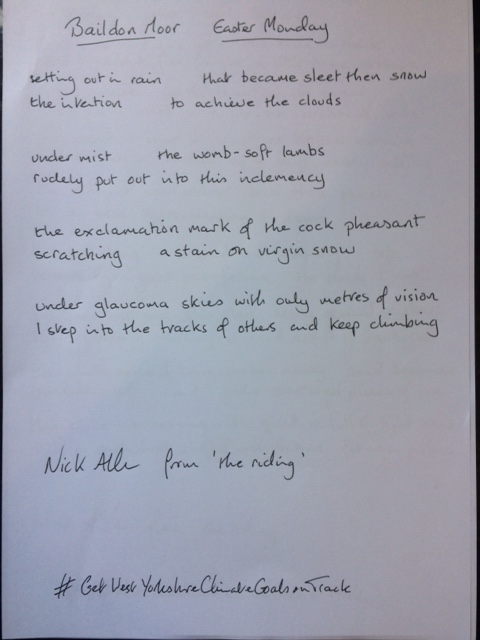 Baildon Moor Easter Monday
setting out in rain that became sleet then snow
the intention to achieve the clouds
under mist the womb-soft lambs
rudely put out into this inclemency
the exclamation mark of the cock pheasant
scratching a stain on virgin snow
under glaucoma skies with only metres of vision
I step into the tracks of others and keep climbing
Nick Allen from 'the riding'
#GetWestYorkshireClimateGoalsonTrack